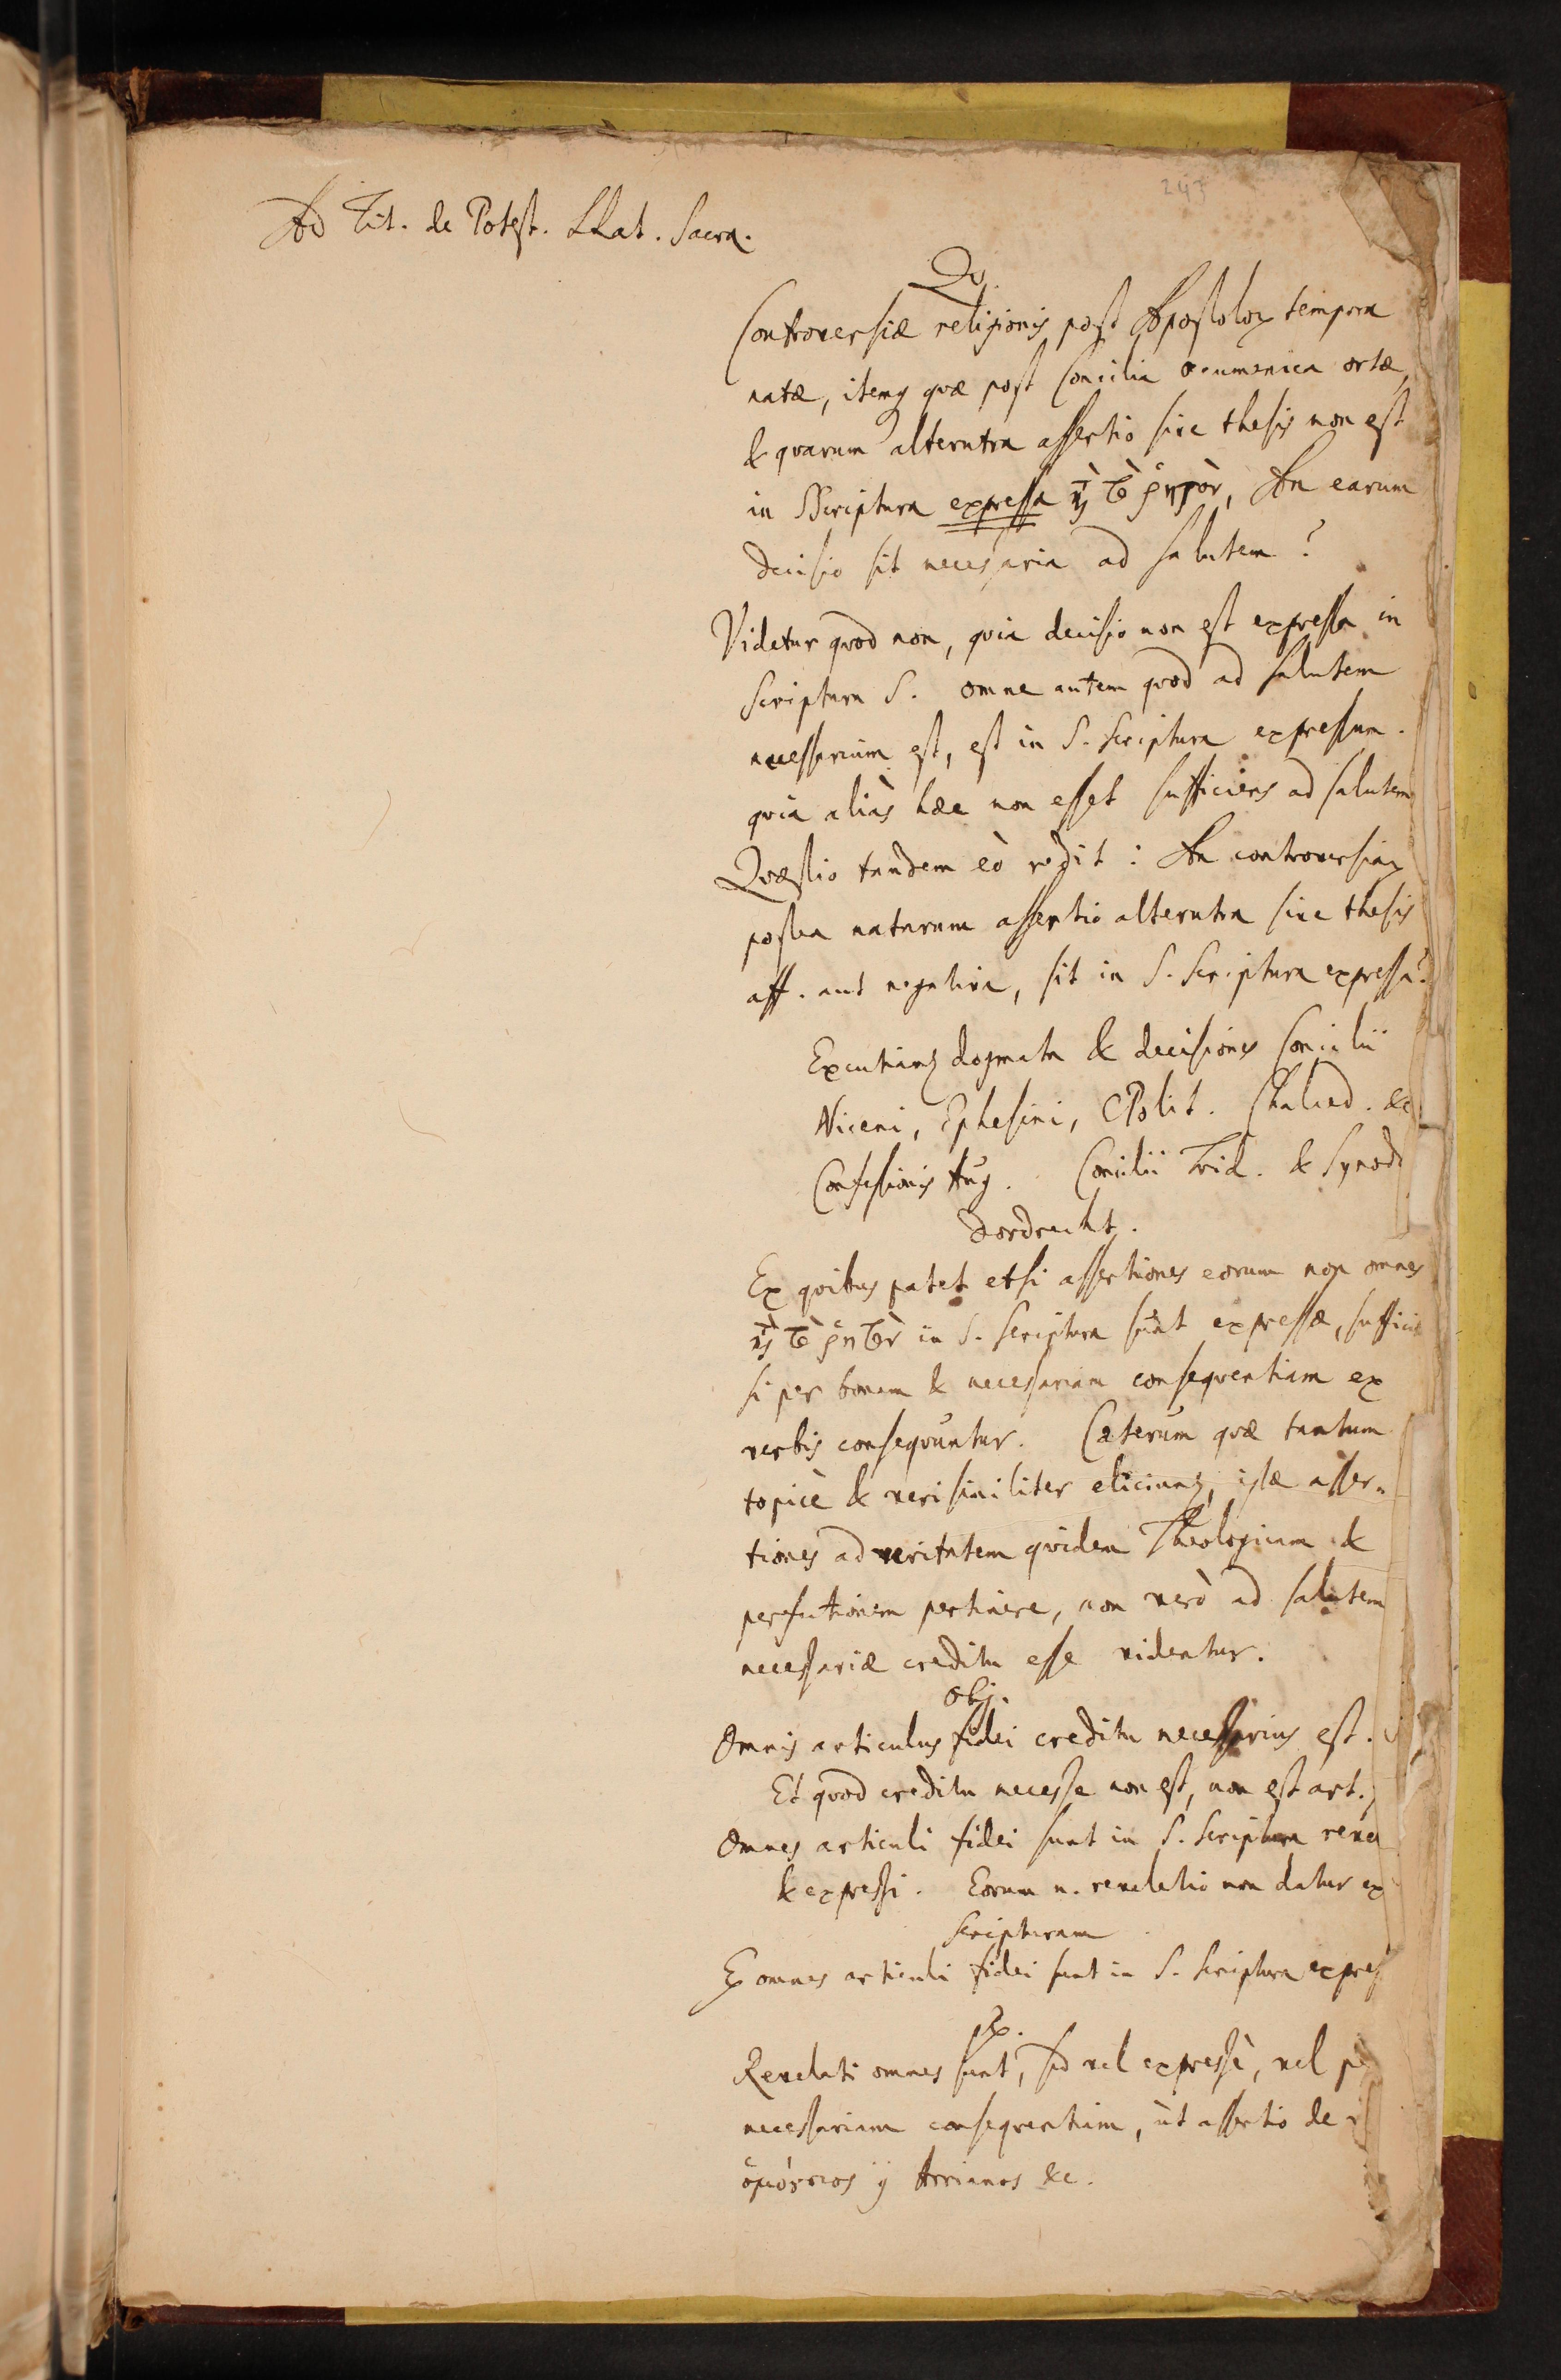 247
Ad Tit. de Potest. Stat. Sacra.
Qu.
Controversiæ religionis post Apostoloꝝ tempora
natæ, itemq quæ post Concilia œcumenica ortæ,
& quarum alterutra assertio sive thesis non est
in SScriptura expressa κτ̀ τὸ ῥητὸν, An earum
decisio sit necessaria ad salutem?
Videtur quod non, quia decisio non est expressa in
Scriptura S. omne autem quod ad salutem
necessarium est, est in S. Scriptura expressum.
quia aliàs hæc non esset sufficiens ad salutem
Quæstio tandem eò redit: An controversiaꝝ
postea natarum assertio alterutra sive thesis
aff. aut negativa, sit in S. Scriptura expressa?
Excutianꝫ dogmata & decisiones Concilii
Niceni, Ephesini, CPolit. Chalced. &c
Confessionis Aug. Concilii Trid. & Synodi
Dordrecht.
Ex quibus patet etsi assertiones eorum non omnes
κτ̀ τὸ ῥητὸν in S. Scriptura sint expressæ, suffici
si per bonam & necessariam consequentiam ex
verbis consequuntur. Cæterum quæ tantum
topicè & verisimiliter eliciunꝫ, istæ asser-
tiones ad veritatem quidem Theologicam &
perfectionem pertinere, non verò ad salutem
necessariæ creditu esse videntur.
Obj.
Omnis articulus fidei creditu necessarius est.
Et quod creditu necesse non est, non est art.
Omnes articuli fidei sunt in S. Scriptura reve
& expressi. Eorum n. revelatio non datur ex
Scripturam
E omnes articuli fidei sunt in S. Scriptura expres
Rx.
Revelati omnes sunt, sed vel expressè, vel pe
necessariam consequentiam, ut assertio de
ὁμοούσιος Arrianos &c.